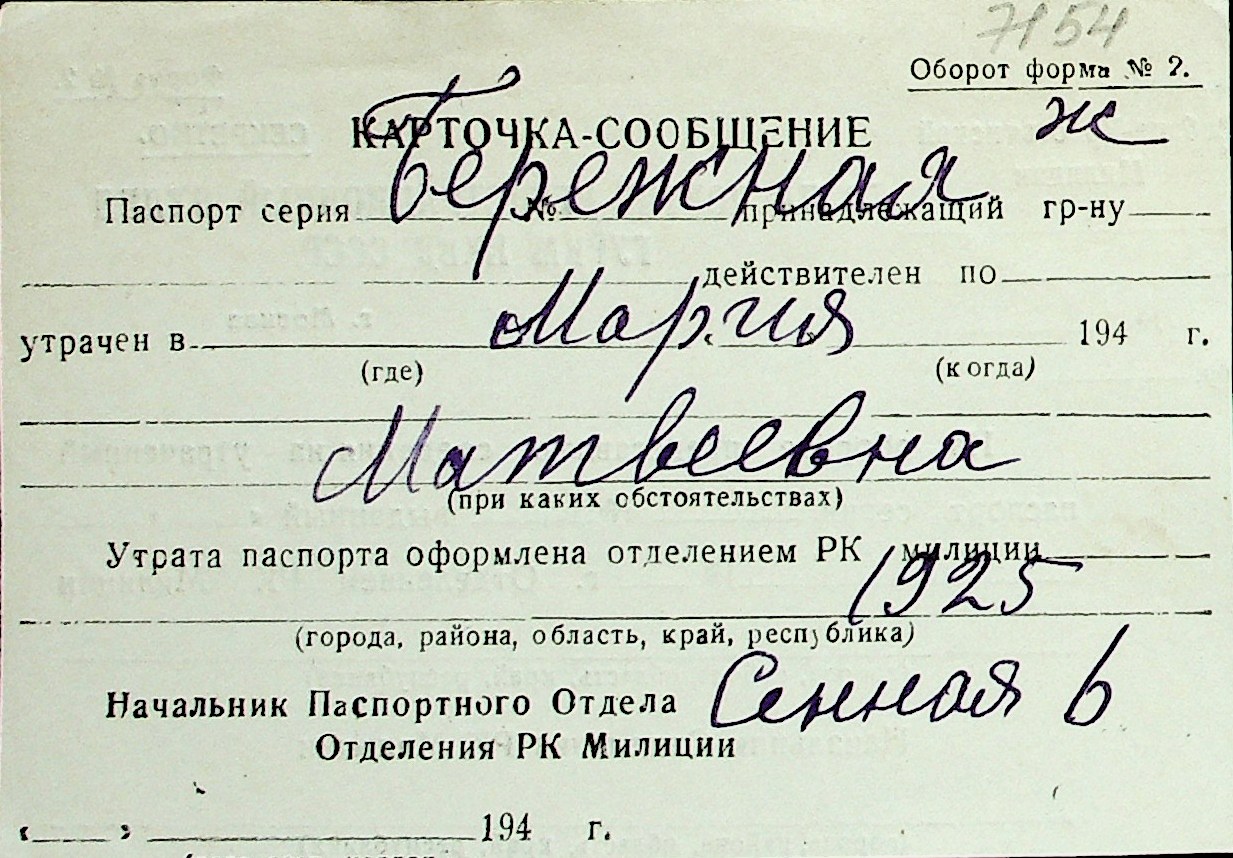 7154
Оборот форма № 2.
ж
КАРТОЧКА-СООБЩЕНИЕ
Бережная
Паспорт серия № принадлежащий гр-ну
действителен по
Мария
утрачен в 194 г.
(где) (когда)
Матвеевна
(при каких обстоятельствах)
Утрата паспорта оформлена отделением РК милиции
1925
(города, района, область, край, республика)
Начальник Паспортного Отдела Сенная 6
Отделения РК Милиции
« » 194 г.